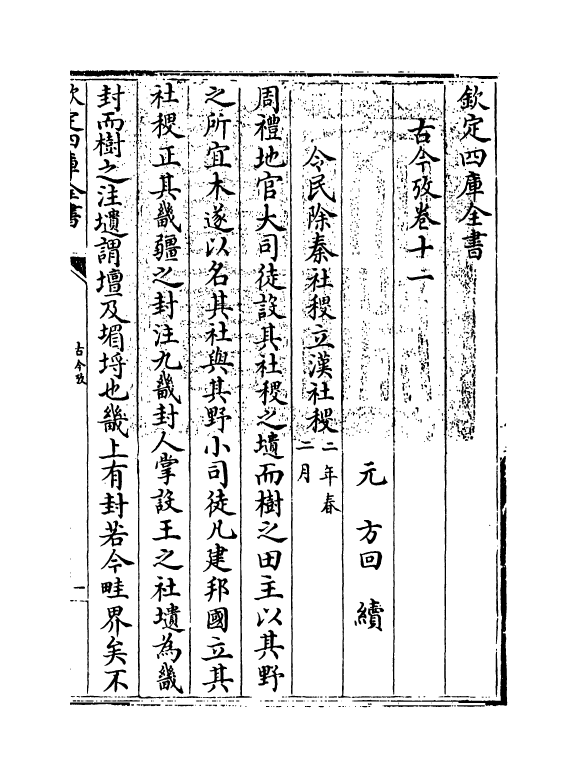 欽定四庫全書
古今攷卷十一
元 方回 續
令民除秦社稷立漢社稷二年春二月
周禮地官大司徒設其社稷之壝而樹之田主以其野
之所宜木遂以名其社與其野小司徒凡建邦國立其
社稷正其畿疆之封注九畿封人掌設王之社壝為畿
封而樹之注壝謂壇及堳埒也畿上有封若今畦界矣不
欽定四庫全書
古今攷
一